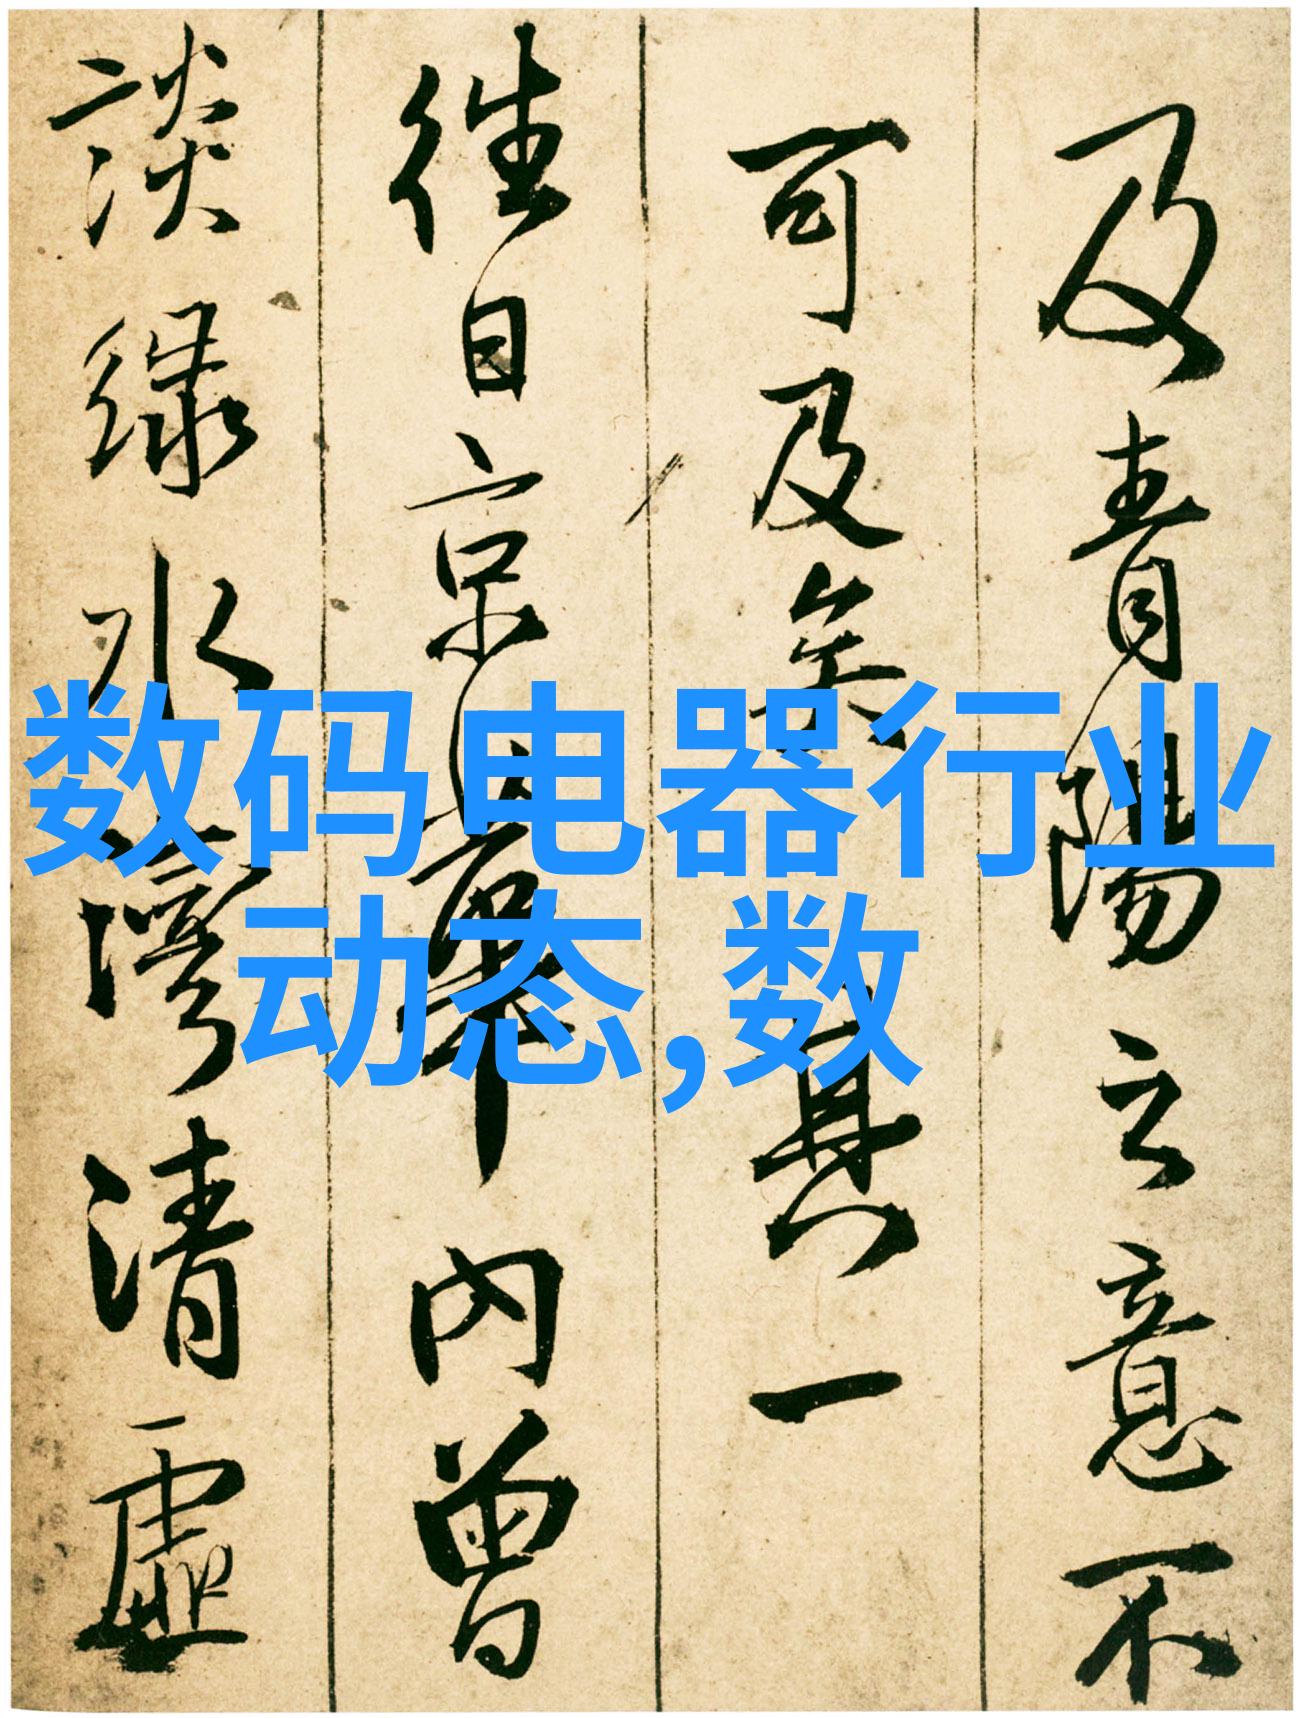 及青陽之意不
可及矣其一
往日京華內曾
談绿水灣清虛
数码电器行业
动态,数